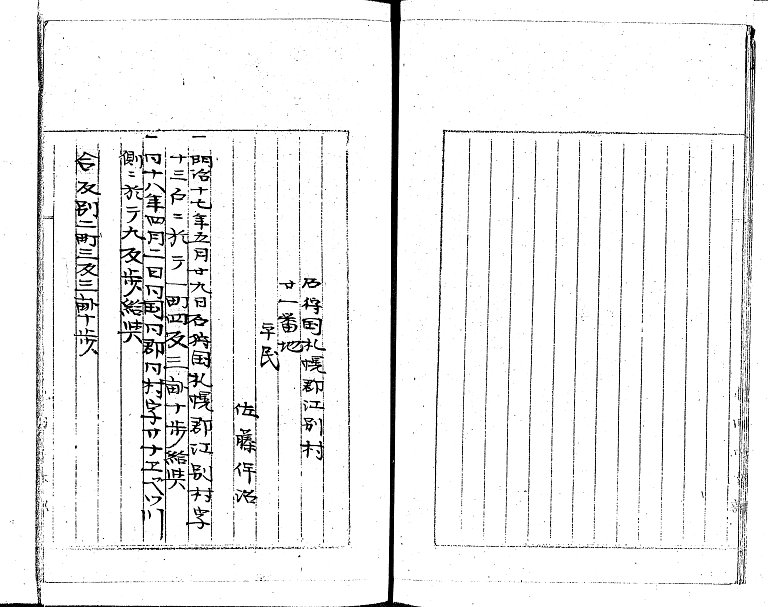 石狩国札幌郡江別村
廿一番地
平民
佐藤伴治
一 明治十七年五月廿九日石狩国札幌郡江別村字
十三戸ニ於テ一町四反三畝十歩給与
一 仝十八年四月二日仝国仝郡仝村字サナエヘツ川
側ニ於テ九反歩給与
合反別二町三反三畝十歩